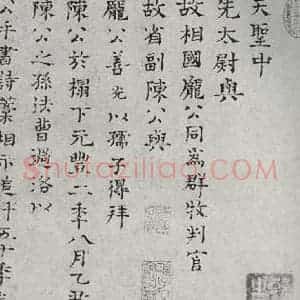 天聖中
先太尉與
故相國龐公同為群牧判官
故省副陳公與
龐公善光以孺子得拜
陳公於榻下元豐二年八月乙
陳公之孫法曹過洛以
公手書詩藁相示追
Shufaziliao.COM